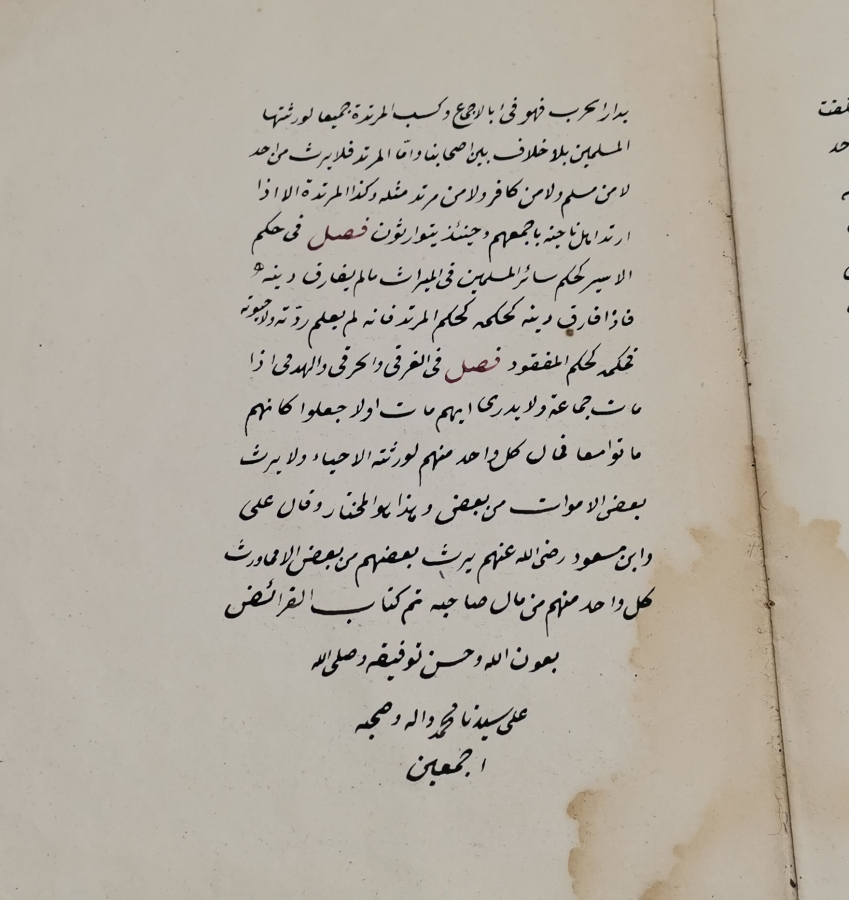 بدار الحرب فهو فئ بالاجماع وكسب المرتدة جميعا لورثتها
المسلمين بلا خلاف بين اصحابنا واما المرتد فلا يرث من احد
لا من مسلم ولا من كافر ولا من مرتد مثله وكذا المرتدة الا اذا
ارتد اهل ناحية باجمعهم وحينئذ يتوارثون فصل فى حكم
الاسير كحكم سائر المسلمين فى الميراث مالم يفارق دينه
فاذا فارق دينه فحكمه كحكم المرتد فانه لم يعلم ردته ولا حيوته
فحكمه كحكم المفقود فصل فى الغرقى والحرقى والهدمى اذا
مات جماعة ولا يدرى ايهم مات اولا جعلوا كانهم
ماتوا معا فمال كل واحد منهم لورثته الاحياء ولا يرث
بعض الاموات من بعض وهذا هو المختار وقال على
وابن مسعود رضى الله عنهم يرث بعضهم من بعض الا مما ورث
كل واحد منهم من مال صاحبه تم كتاب الفرائض
بعون الله وحسن توفيقه وصلى الله
على سيدنا محمد واله وصحبه
اجمعين
لفت
حد